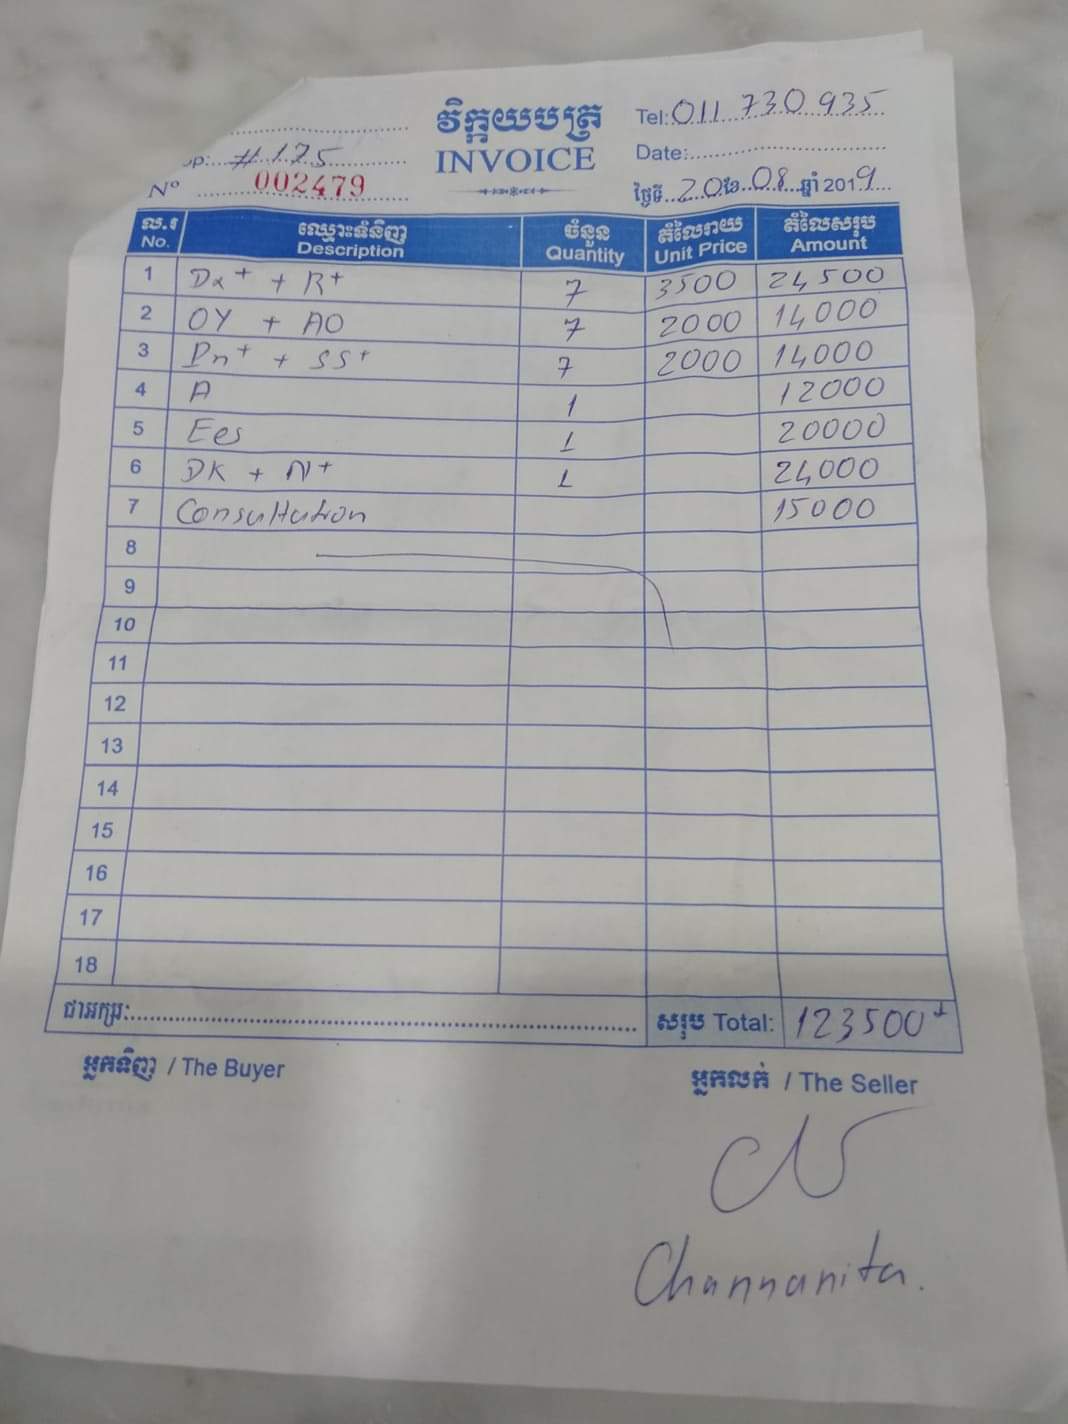 វិក្កយបត្រ
INVOICE
Tel: 011 730 935
# 175
Date:
Nº 002479
ថ្ងៃទី 20 ខែ 08 ឆ្នាំ 2019
ល.រ ឈ្មោះទំនិញ ចំនួន តំលៃរាយ តំលៃសរុប
No. Description Quantity Unit Price Amount
1 Dx+ + R+ 7 3500 24,500
2 OY + AO 7 2000 14,000
3 Dn+ + SS+ 7 2000 14000
4 A 1 12000
5 Ees 1 20000
6 DK + N+ 1 24,000
7 Consultation 15000
8
9
10
11
12
13
14
15
16
17
18
ជាអក្សរ: សរុប Total: 123500
អ្នកទិញ / The Buyer
អ្នកលក់ / The Seller
Channanita.